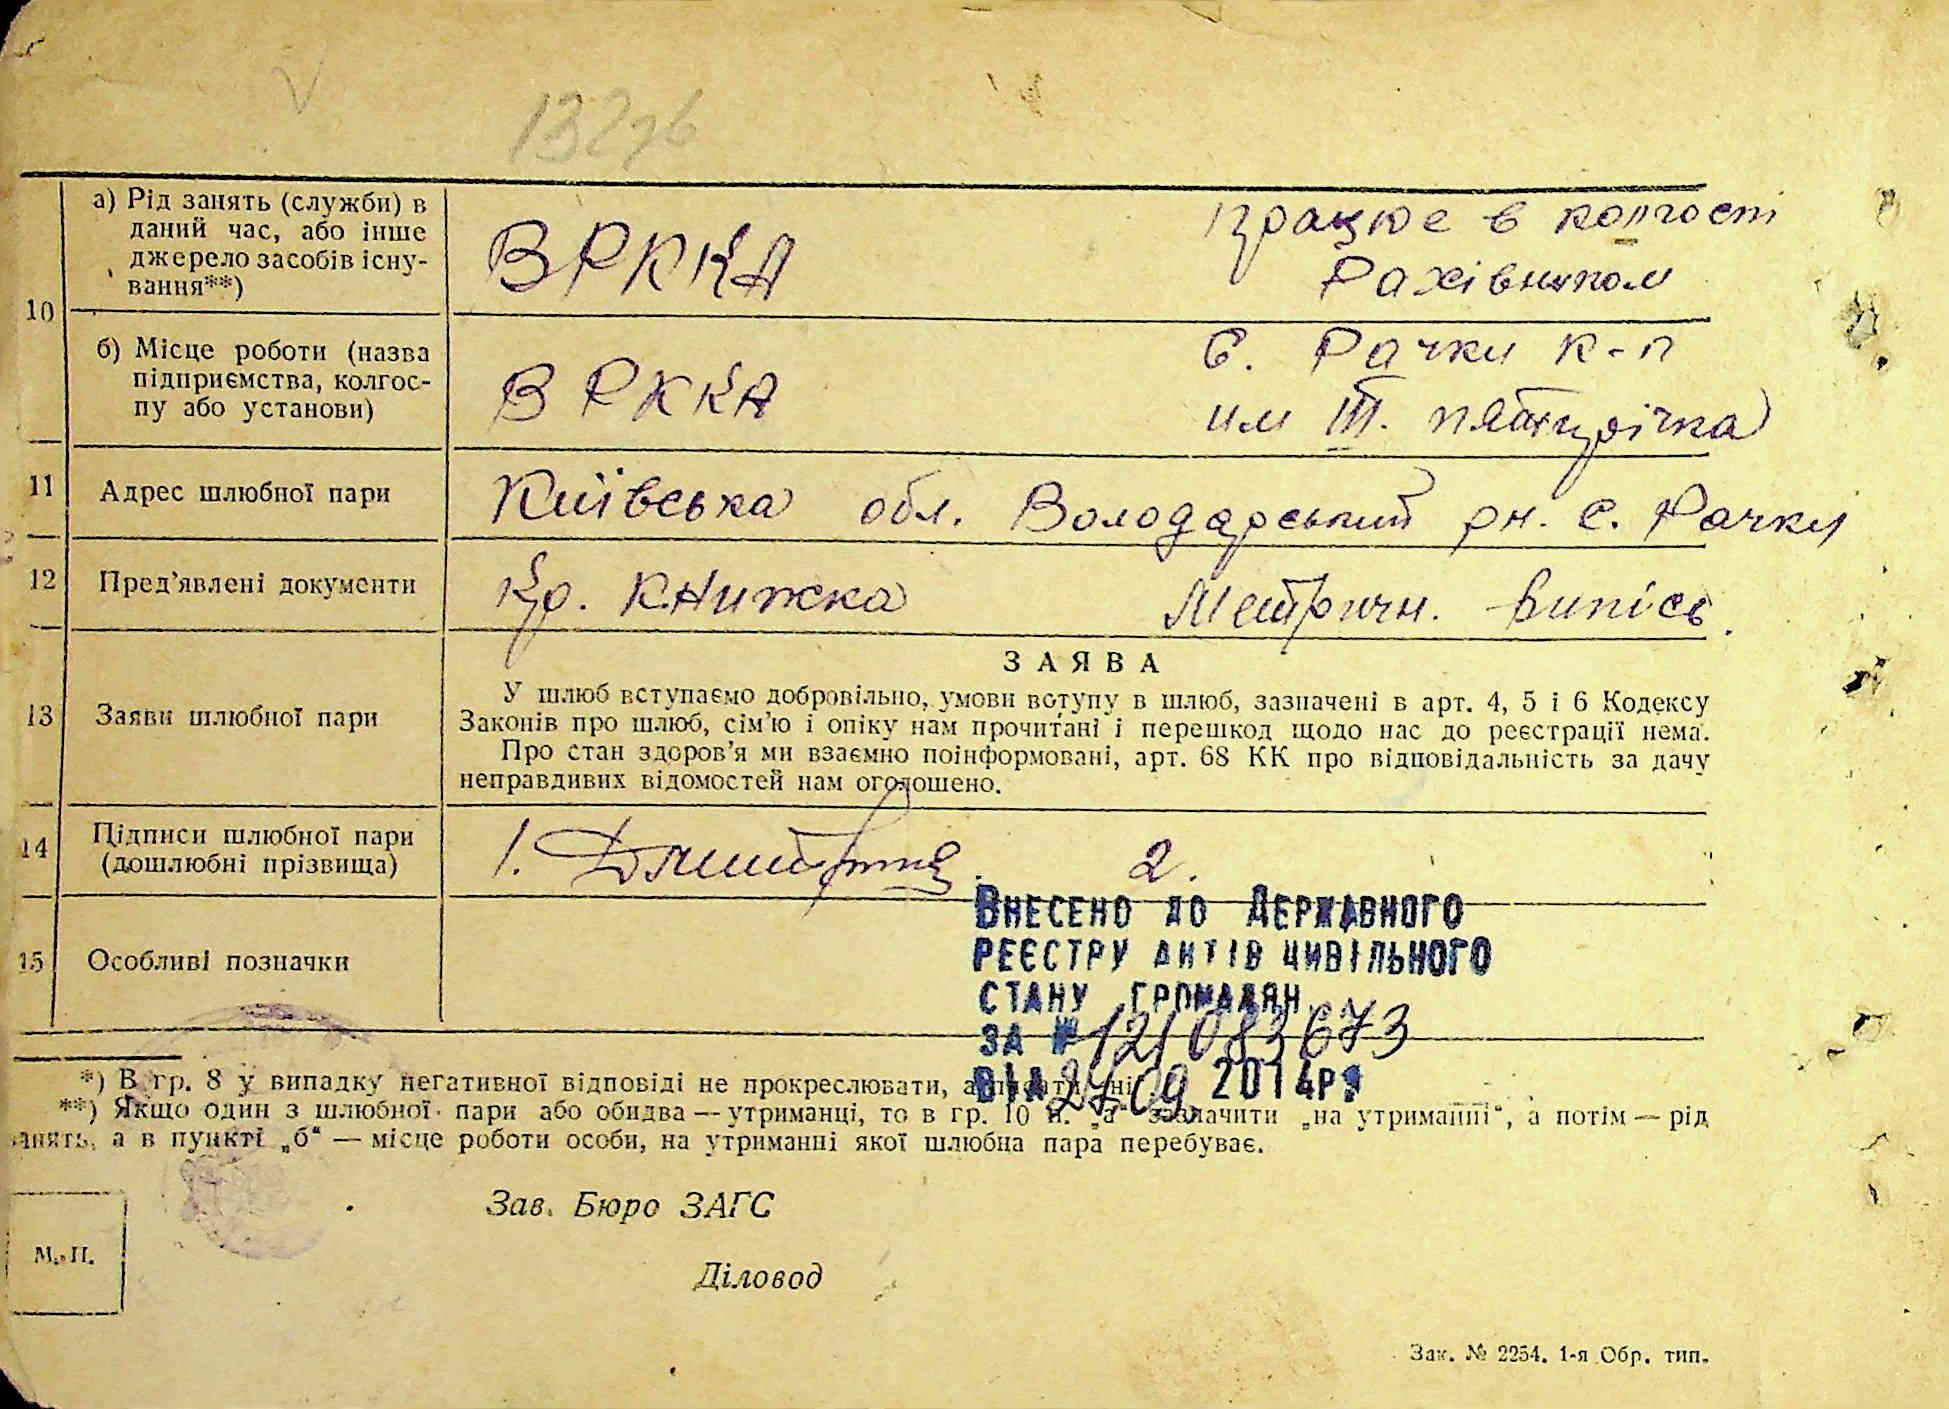 132зв
10
а) Рід занять (служби) в
даний час, або інше
джерело засобів існу-
вання**)
В РККА
працює в колгоспі
Рахівником
б) Місце роботи (назва
підприємства, колгос-
пу або установи)
В РККА
с. Рачки к-п
им III. пятирічка
11 Адрес шлюбної пари
Київська обл. Володарський рн. с. Рачки
12 Пред’явлені документи
Кр. книжка
Метричн. випісь.
13 Заяви шлюбної пари
ЗАЯВА
У шлюб вступаємо добровільно, умови вступу в шлюб, зазначені в арт. 4, 5 і 6 Кодексу
Законів про шлюб, сім’ю і опіку нам прочитані і перешкод щодо нас до реєстрації нема.
Про стан здоров’я ми взаємно поінформовані, арт. 68 КК про відповідальність за дачу
неправдивих відомостей нам оголошено.
14 Підписи шлюбної пари
(дошлюбні прізвища)
1.
2.
15 Особливі позначки
Внесено до Державного
реєстру актів цивільного
стану громадян
за № 121083673
від 27.09 2014р.
*) В гр. 8 у випадку негативної відповіді не прокреслювати, а писати „ні“
**) Якщо один з шлюбної пари або обидва — утриманці, то в гр. 10 п. „а“ зазначити „на утриманні“, а потім — рід
занять, а в пункті „б“ — місце роботи особи, на утриманні якої шлюбна пара перебуває.
Зав. Бюро ЗАГС
М. П.
Діловод
Зак. № 2254. 1-я Обр. тип.